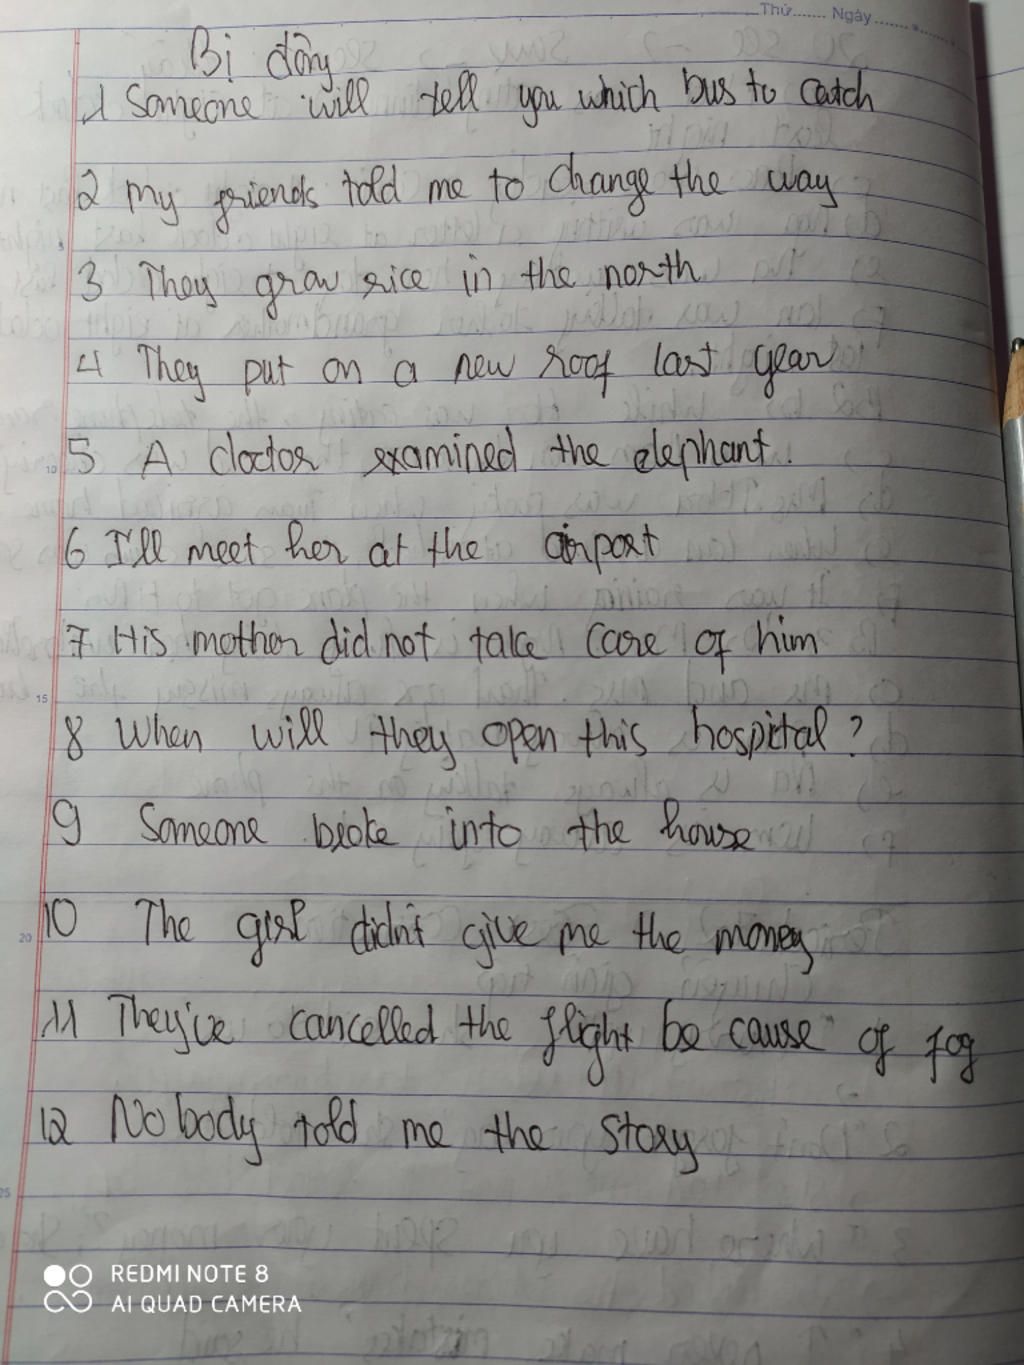 Thứ....... Ngày..........
Bị động
1 Someone will tell you which bus to catch
2 My friends told me to change the way
3 They grow rice in the north
5
4 They put on a new roof last year
5 A doctor examined the elephant.
10
6 I'll meet her at the airport
7 His mother did not take care of him
15
8 When will they open this hospital ?
9 Someone broke into the house
10 The girl didn't give me the money
20
11 They've cancelled the flight be cause of fog
12 No body told me the story
25
REDMI NOTE 8
AI QUAD CAMERA